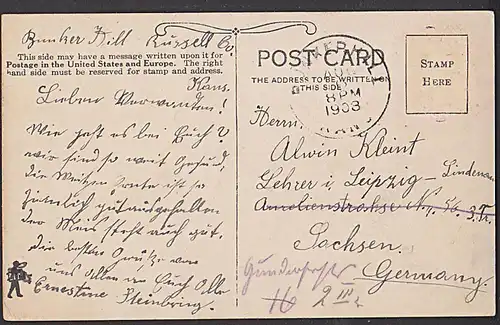 Bunker Hill Russell Co.
This side may have a message written upon it for
Postage in the United States and Europe. The right
hand side must be reserved for stamp and address.
Kans.
Lieben Verwanten!
Wie geht es bei Euch?
wir sind so weit Gesund,
die Weitzen Ernte ist so
ziemlich gut ausgefallen
der Mais steht auch gut,
die besten Grüße von
uns allen an Euch Alle
Ernestine Steinbring.
POST CARD
THE ADDRESS TO BE WRITTEN ON
THIS SIDE
BUNKER HILL
AUG
8 PM
1908
KANS
STAMP
HERE
Herrn
Alwin Kleint
Lehrer i, Leipzig – Lindenau
Amelienstrahse No. 56. 3. Tr.
Sachsen.
Germany.
16 2 III r